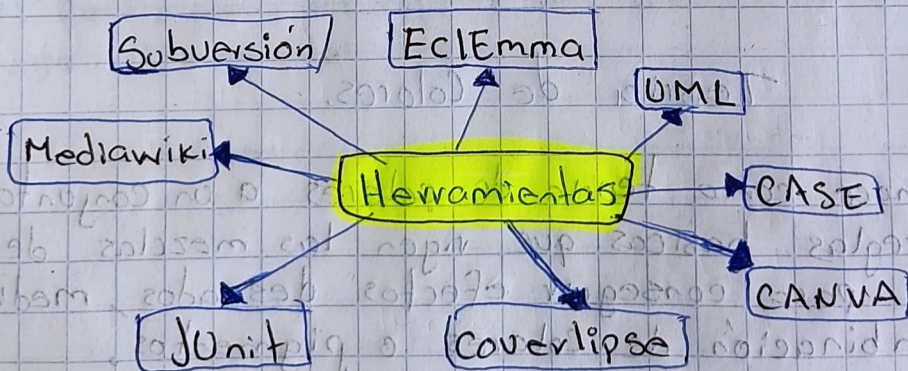 Subversión
EclEmma
UML
Mediawiki
Herramientas
CASE
CANVA
JUnit
Coverlipse